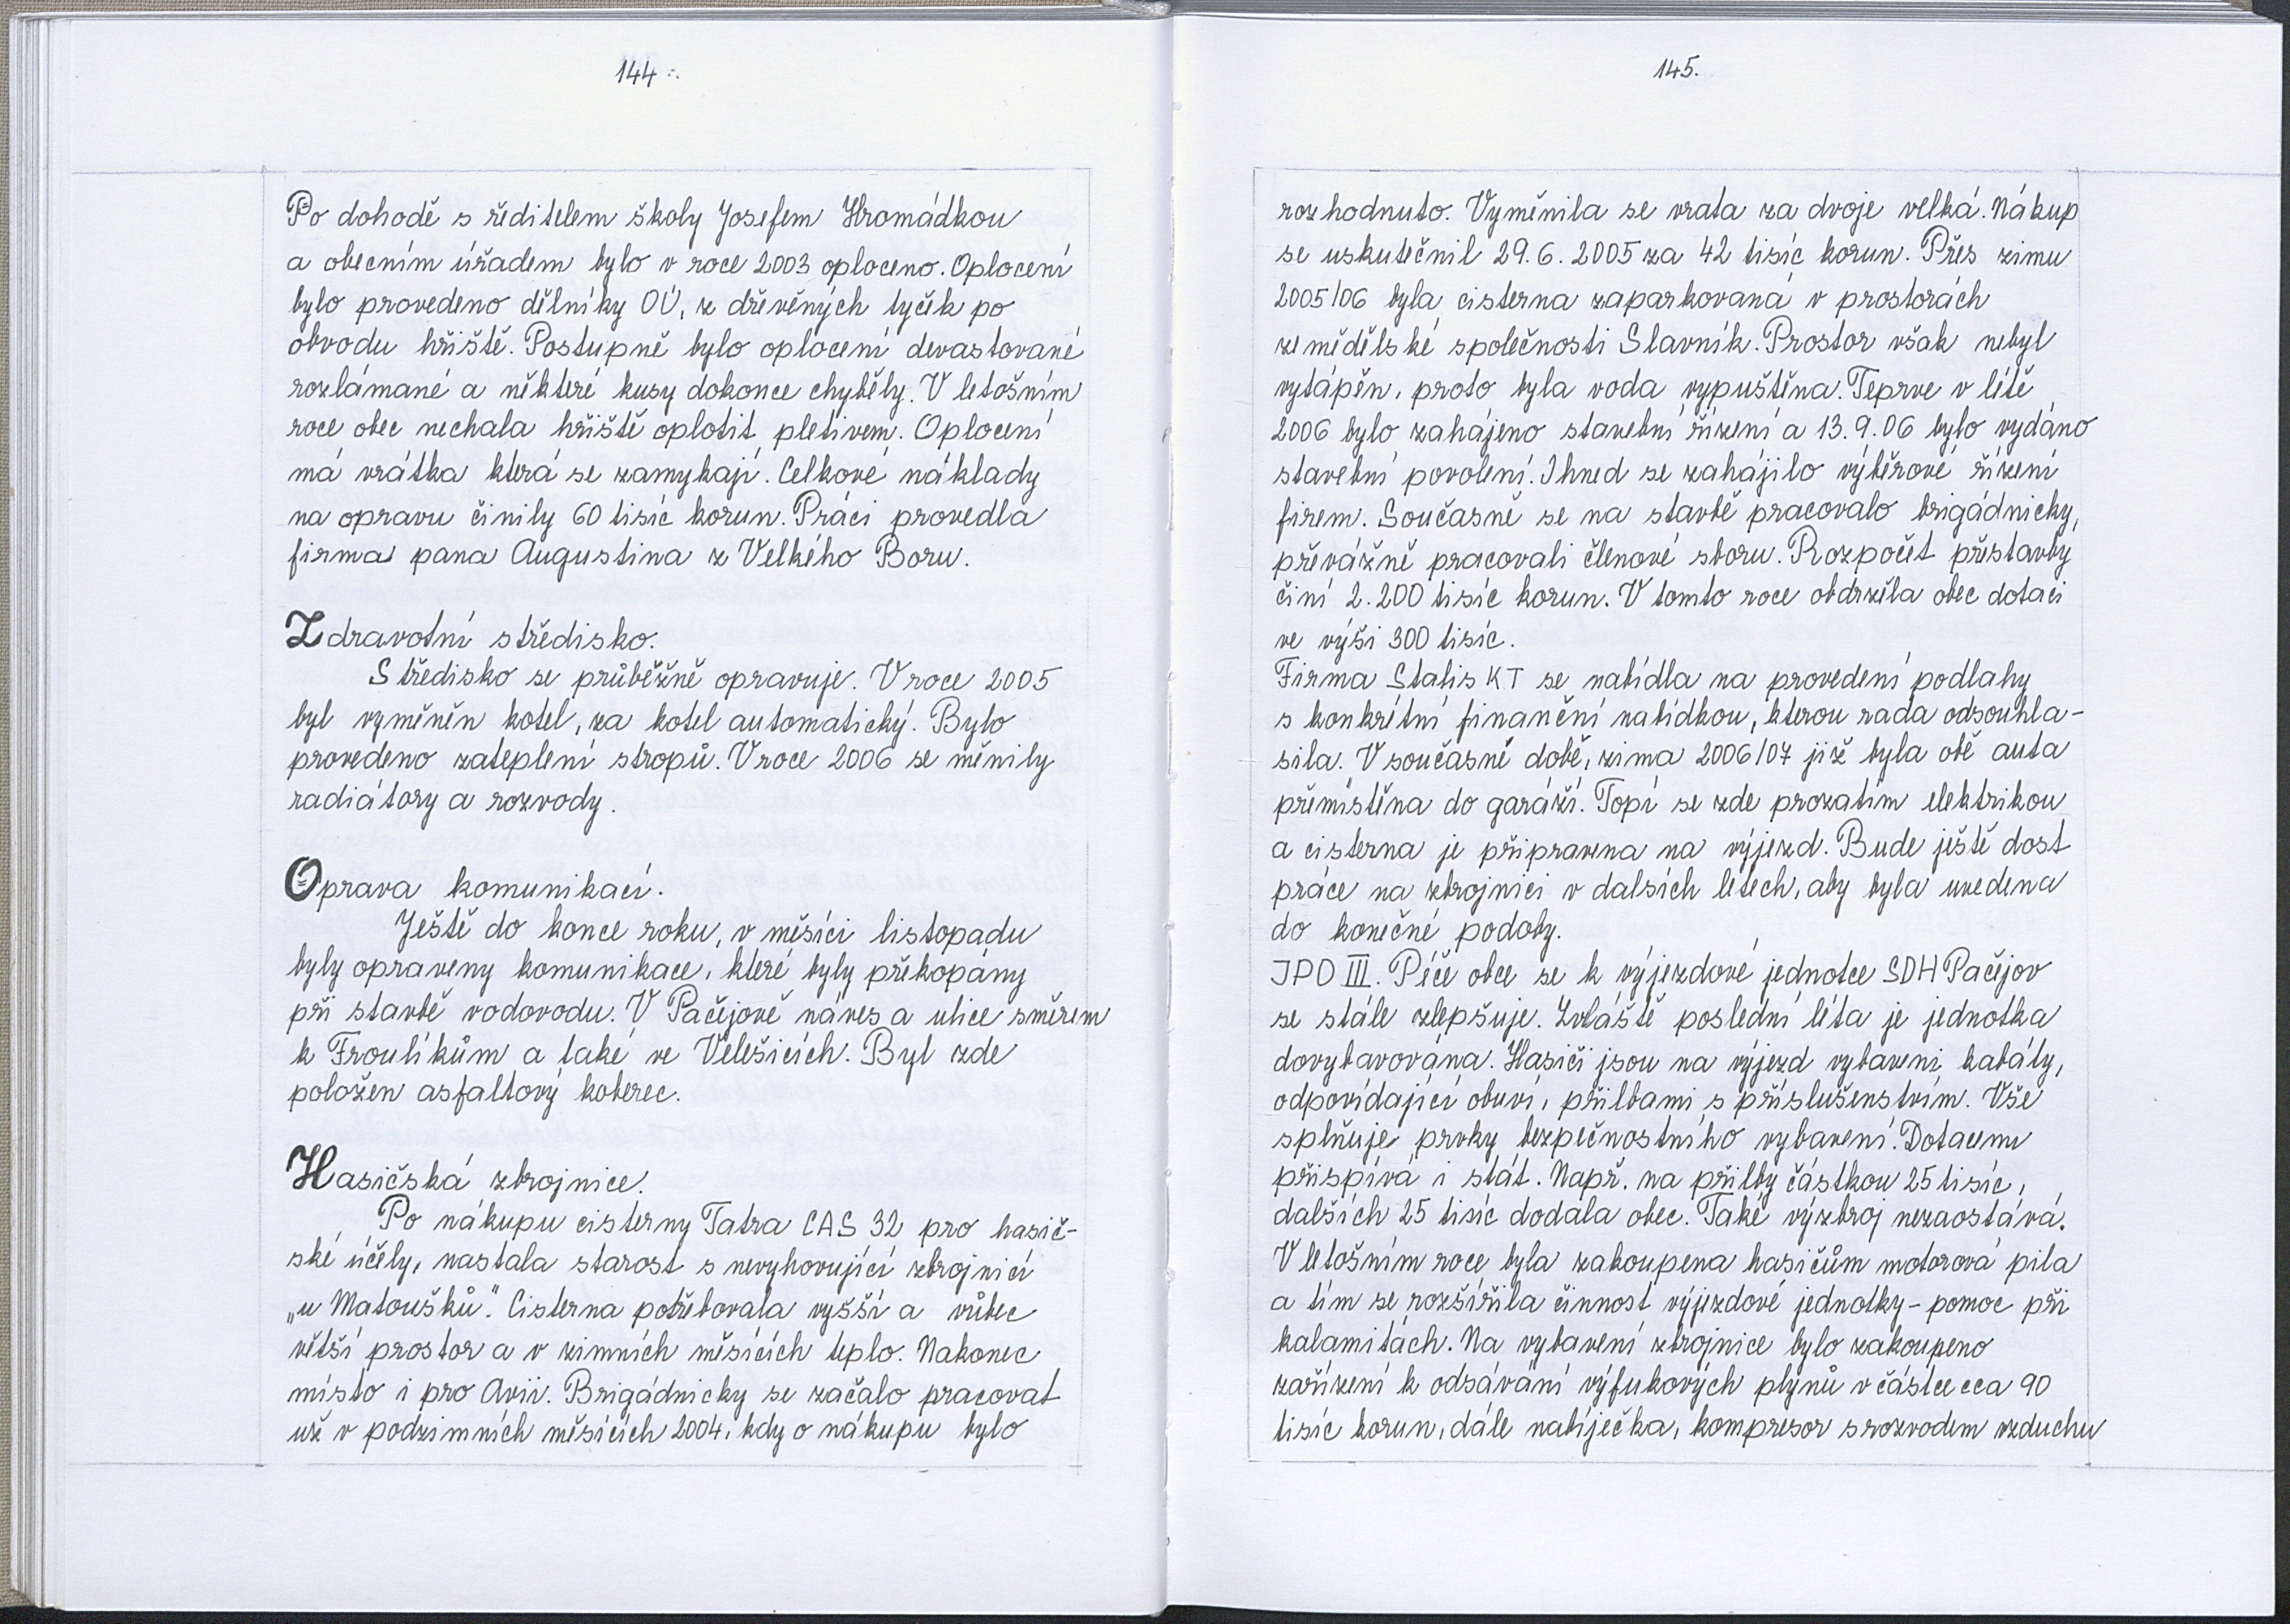 144.
Po dohodě s ředitelem školy Josefem Hromádkou
a obecním úřadem bylo v roce 2003 oploceno. Oplocení
bylo provedeno dělníky OÚ, z dřevěných tyček po
obvodu hřiště. Postupně bylo oplocení devastované
rozlámané a některé kusy dokonce chyběly. V letošním
roce obec nechala hřiště oplotit pletivem. Oplocení
má vrátka která se zamykají. Celkové náklady
na opravu činily 60 tisíc korun. Práci provedla
firma pana Augustina z Velkého Boru.
Zdravotní středisko.
Středisko se průběžně opravuje. V roce 2005
byl vyměněn kotel, za kotel automatický. Bylo
provedeno zateplení stropů. V roce 2006 se měnily
radiátory a rozvody.
Oprava komunikací.
Ještě do konce roku, v měsíci listopadu
byly opraveny komunikace, které byly překopány
při stavbě vodovodu. V Pačejově náves a ulice směrem
k Froulíkům a také ve Velešicích. Byl zde
položen asfaltový koberec.
Hasičská zbrojnice.
Po nákupu cisterny Tatra CAS 32 pro hasič-
ské účely, nastala starost s nevyhovující zbrojnicí
„u Matoušků". Cisterna potřebovala vyšší a vůbec
větší prostor a v zimních měsících teplo. Nakonec
místo i pro Avii. Brigádnicky se začalo pracovat
už v podzimních měsících 2004, kdy o nákupu bylo
145.
rozhodnuto. Vyměnila se vrata za dvoje velká. Nákup
se uskutečnil 29.6.2005 za 42 tisíc korun. Přes zimu
2005/06 byla cisterna zaparkovaná v prostorách
zemědělské společnosti Slavník. Prostor však nebyl
vytápěn, proto byla voda vypuštěna. Teprve v létě
2006 bylo zahájeno stavební řízení a 13.9.06 bylo vydáno
stavební povolení. Ihned se zahájilo výběrové řízení
firem. Současně se na stavbě pracovalo brigádnicky,
převážně pracovali členové sboru. Rozpočet přestavby
činí 2.200 tisíc korun. V tomto roce obdržela obec dotaci
ve výši 300 tisíc.
Firma Stalis KT se nabídla na provedení podlahy
s konkrétní finanční nabídkou, kterou rada odsouhla-
sila. V současné době, zima 2006/07 již byla obě auta
přemístěna do garáží. Topí se zde prozatím elektrikou
a cisterna je připravena na výjezd. Bude ještě dost
práce na zbrojnici v dalsích letech, aby byla uvedena
do konečné podoby.
JPO III. Péče obce se k výjezdové jednotce SDH Pačejov
se stále zlepšuje. Zvláště poslední léta je jednotka
dovybavována. Hasiči jsou na výjezd vybaveni kabáty,
odpovídající obuví, přilbami s příslušenstvím. Vše
splňuje prvky bezpečnostního vybavení. Dotacemi
přispívá i stát. Např. na přilby částkou 25 tisíc,
dalších 25 tisíc dodala obec. Také výzbroj nezaostává.
V letošním roce byla zakoupena hasičům motorová pila
a tím se rozšířila činnost výjezdové jednotky - pomoc při
kalamitách. Na vybavení zbrojnice bylo zakoupeno
zařízení k odsávání výfukových plynů v částce cca 90
tisíc korun, dále nabíječka, kompresor s rozvodem vzduchu